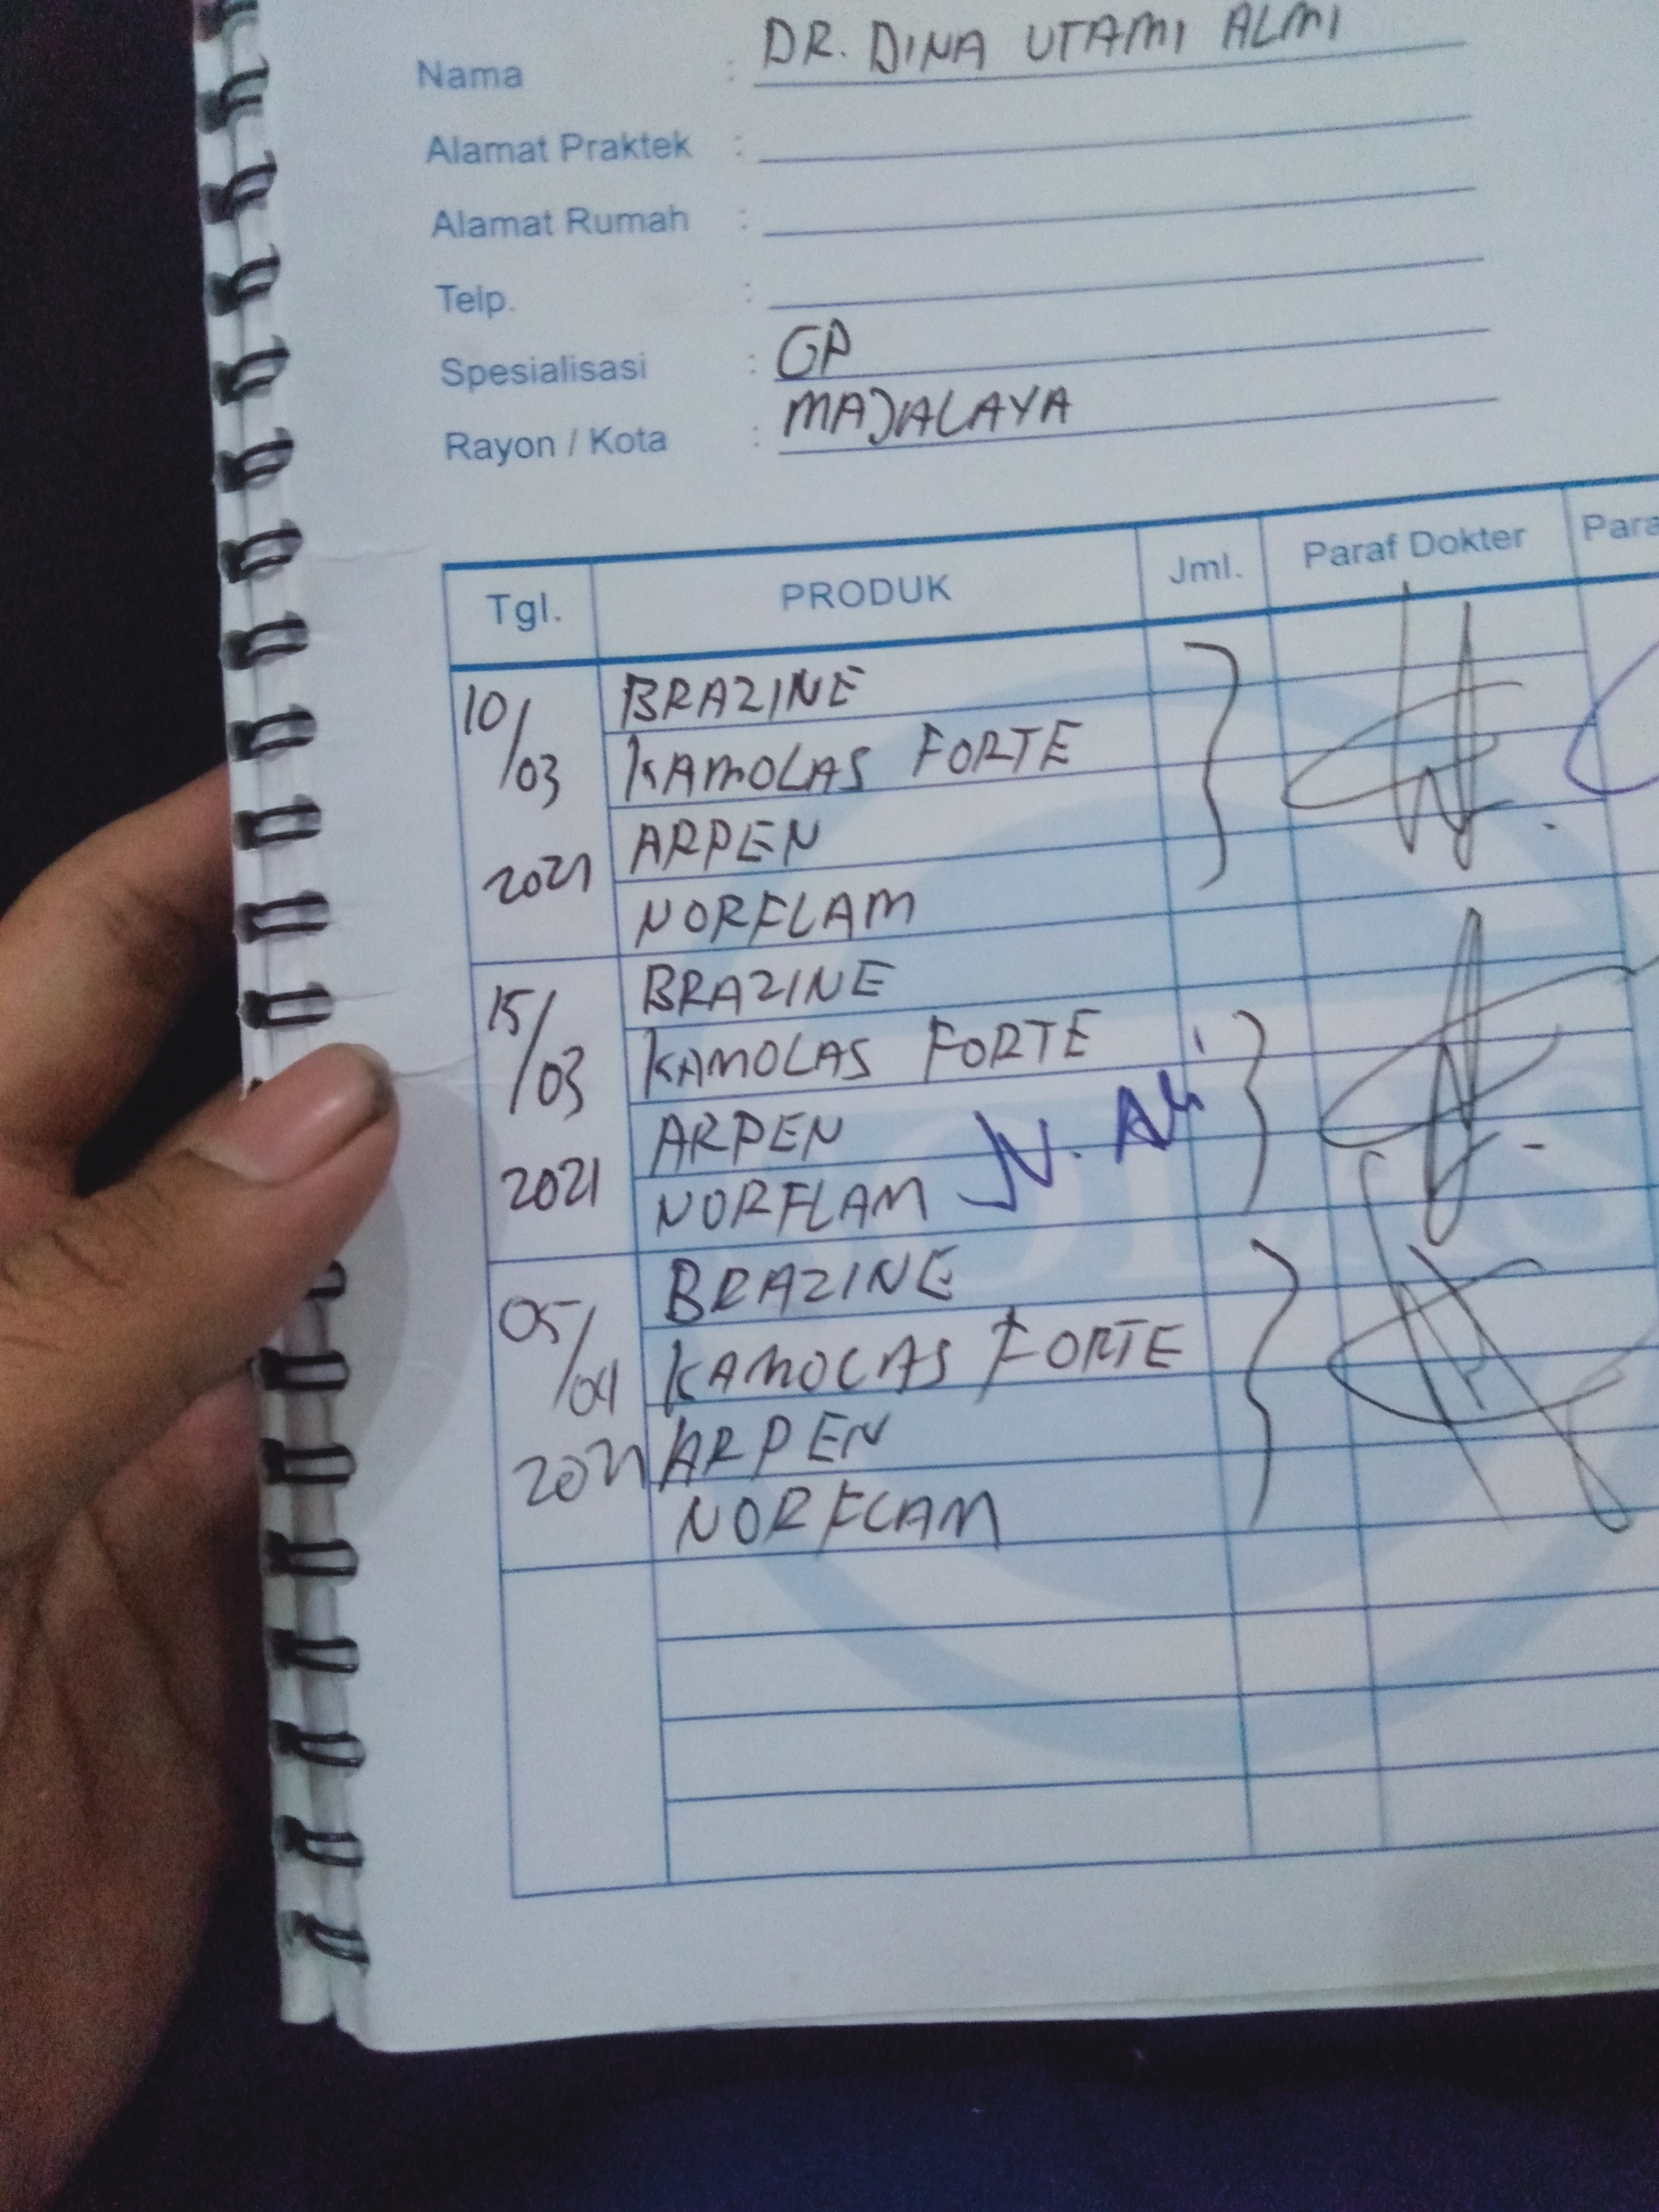 Nama : DR. DINA UTAMI ALMI
Alamat Praktek :
Alamat Rumah :
Telp. :
Spesialisasi : GP
Rayon / Kota : MAJALAYA
Tgl. PRODUK Jml. Paraf Dokter Para
10/03 2021 BRAZINE
KAMOLAS FORTE
ARPEN
NORFLAM
15/03 2021 BRAZINE
KAMOLAS FORTE
ARPEN
NORFLAM
05/04 2021 BRAZINE
KAMOLAS FORTE
ARPEN
NORFLAM